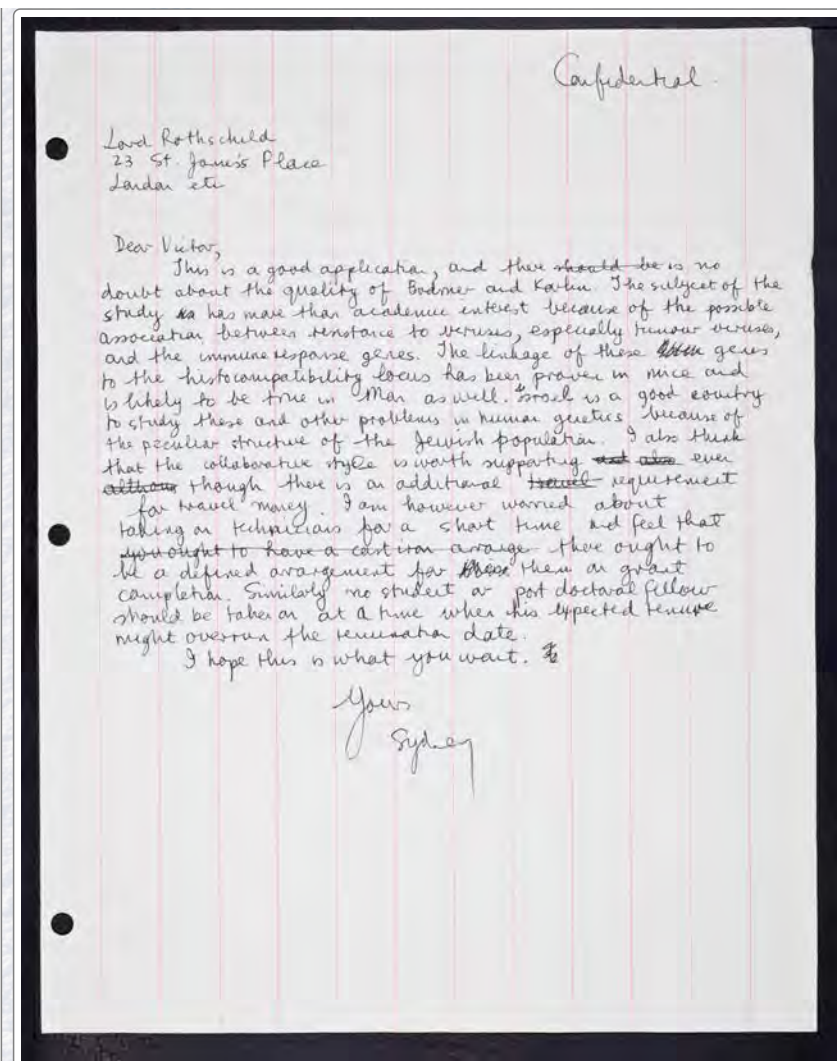 Confidential.
Lord Rothschild
23 St. James's Place
London etc
Dear Victor,
This is a good application, and there should be is no
doubt about the quality of Bodmer and Karlin. The subject of the
study has more than academic interest because of the possible
association between resistance to viruses, especially tumour viruses,
and the immune response genes. The linkage of these genes
to the histocompatibility locus has been proven in mice and
is likely to be true in Man as well. Israel is a good country
to study these and other problems in human genetics because of
the peculiar structure of the Jewish population. I also think
that the collaborative style is worth supporting and also even
although though there is an additional travel requirement
for travel money. I am however worried about
taking on technicians for a short time and feel that
you ought to have a cast iron arrange there ought to
be a defined arrangement for them on grant
completion. Similarly no student or post doctoral fellow
should be taken on at a time when his expected tenure
might overrun the termination date.
I hope this is what you want.
Yours
Sydney